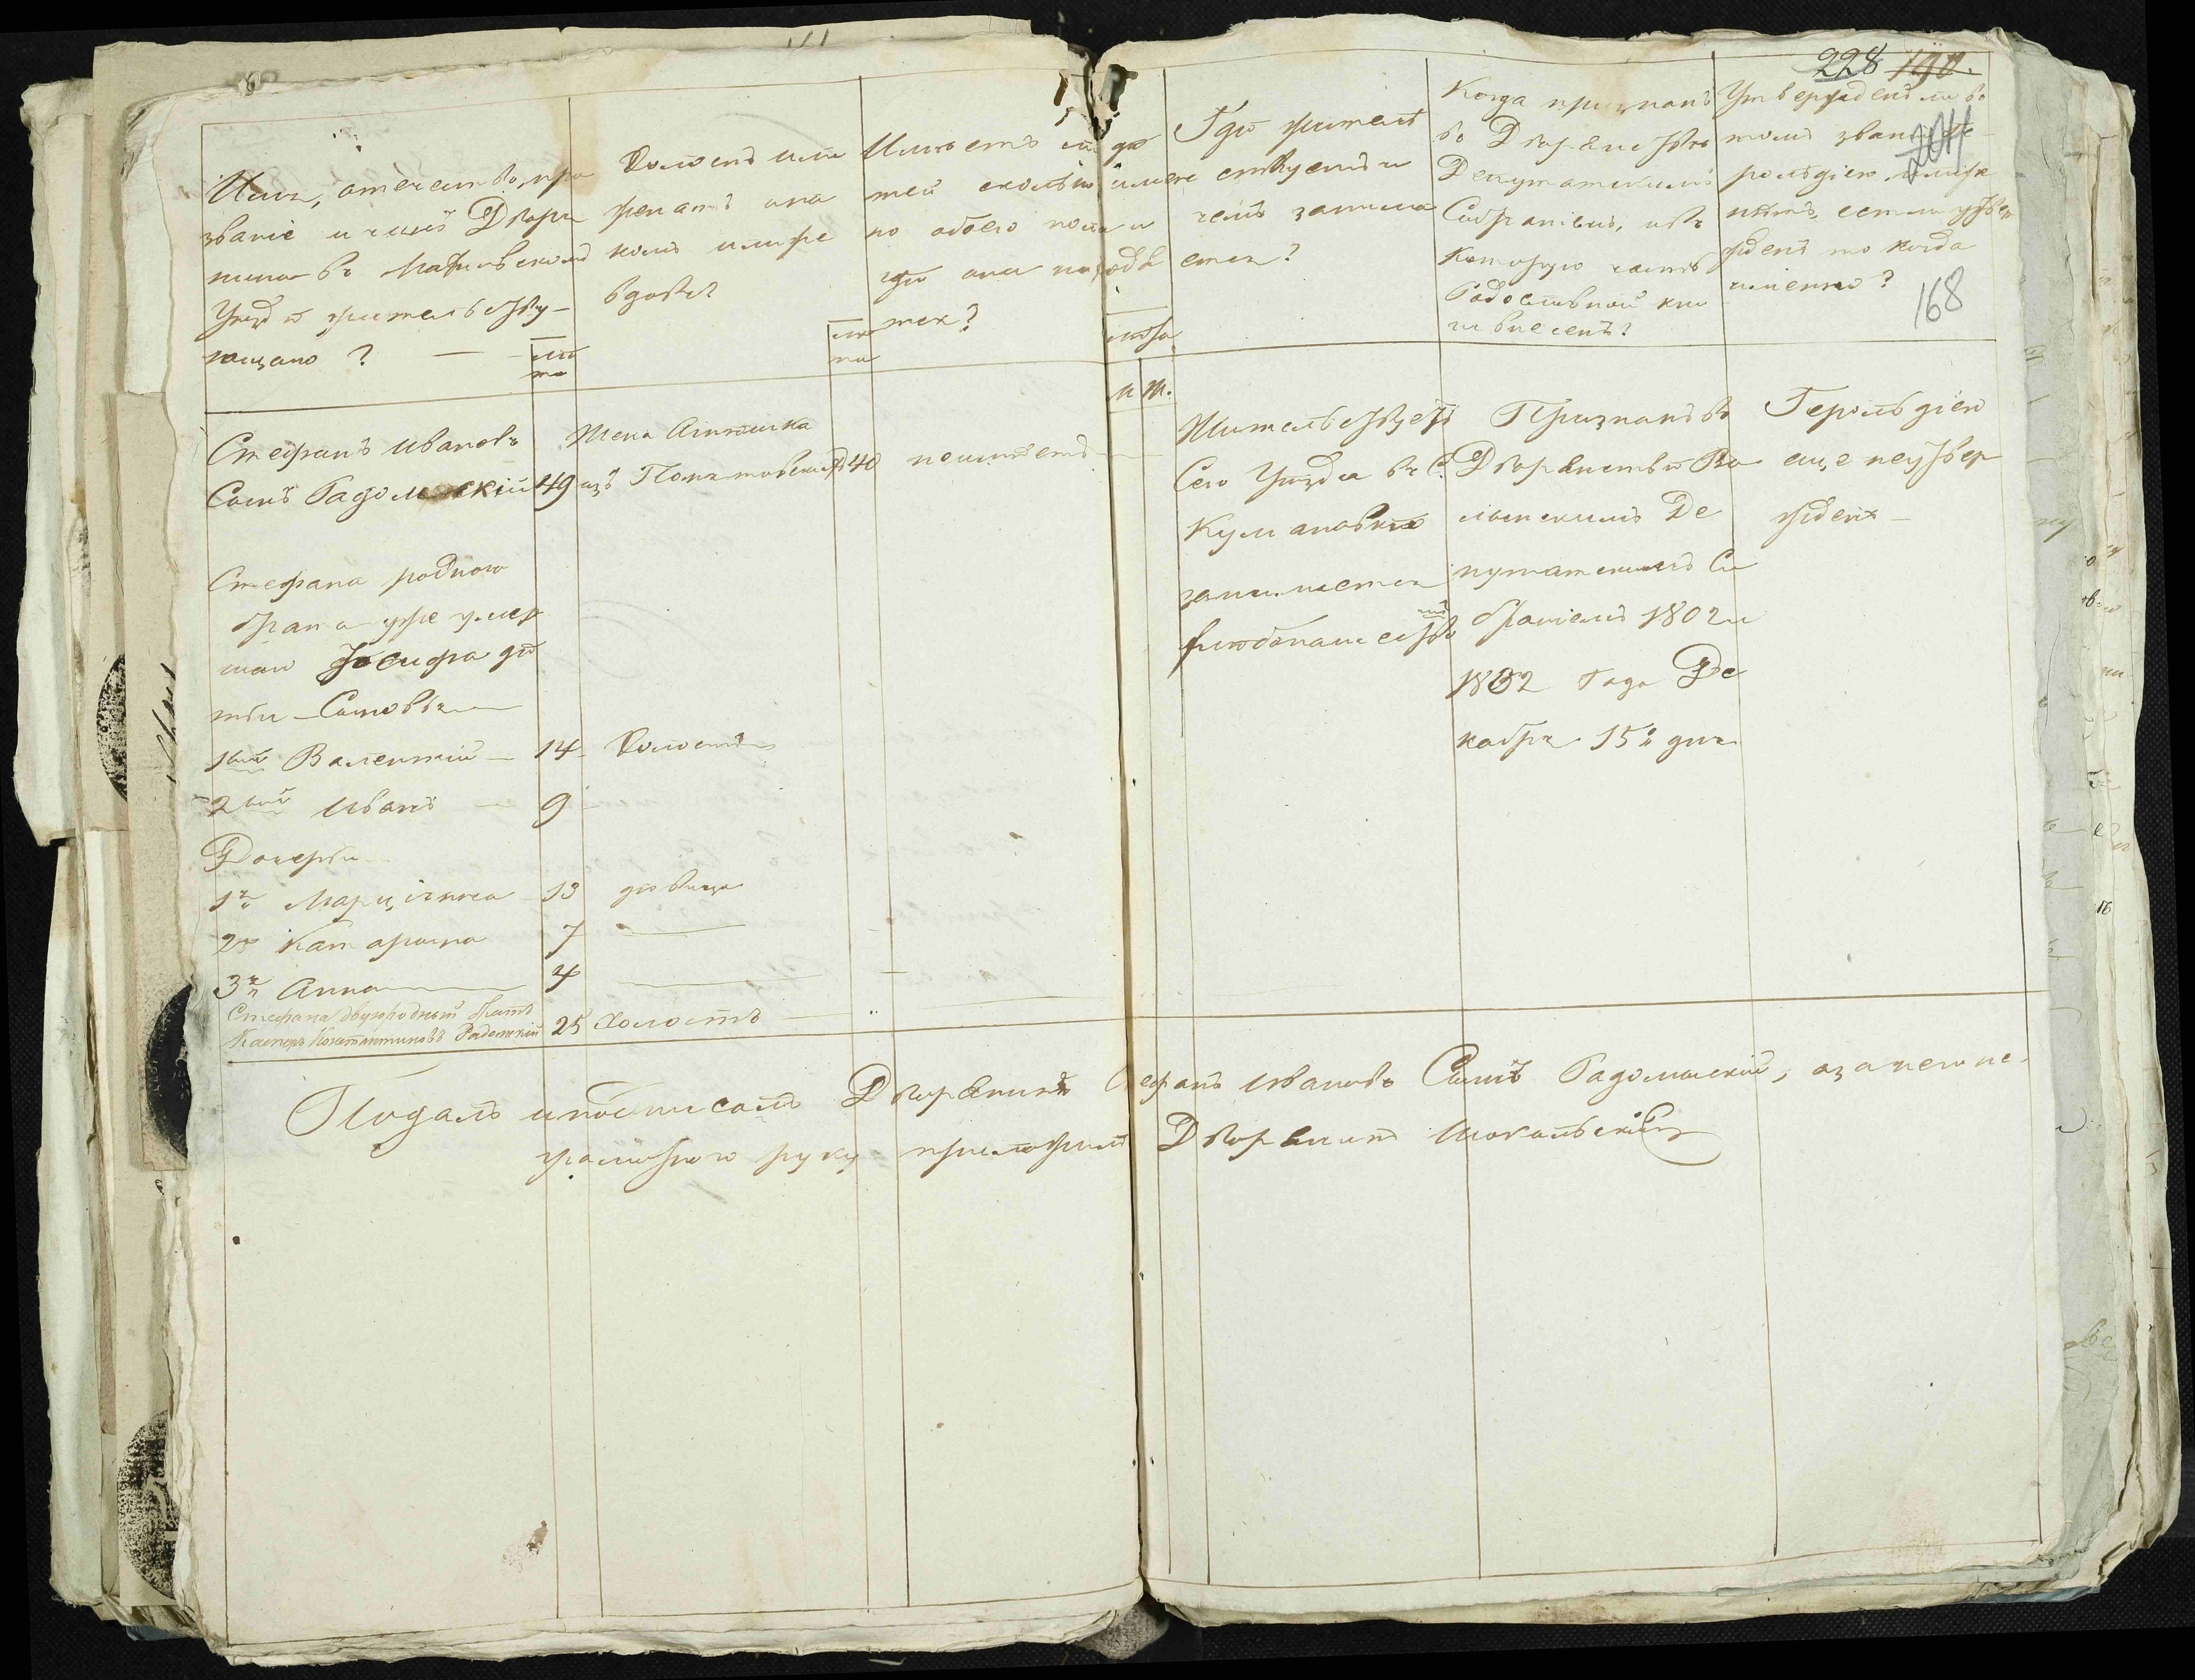 228 190.
204
168
Имя, отечество, про
званіе и чинъ Дворя
нина въ Махновскомъ
Уѣздѣ жительству-
ющаго ? — лѣ
та
Холостъ или
женатъ она
комъ или же
вдовъ?
лѣ
та
Имѣетъ ли дѣ
тей сколько имен
но обоего пола и
гдѣ они находя
тся?
лѣта
м ж.
Гдѣ жительс
ствуетъ и
чемъ занима
ется?
Когда признанъ
въ Дворянствѣ
Депутатскимъ
Собраніемъ, и въ
которую часть
Родословной кни
ги внесенъ?
Утвержденъ ли въ
томъ званіи Ге-
рольдіею или же
нѣтъ, естли утвер
жденъ то когда
именно?
Стефанъ Ивановъ
Сынъ Радомскій 49
Жена Антонина
изъ Понятовскихъ 40
неимѣетъ
Жительствуетъ
Сего Уѣзда въ С.
Кумановкѣ
занимается
хлѣбопашествомъ
Признанъ въ
Дворянствѣ Во
лынскимъ Де
путатскимъ Со
браніемъ 1802 и
1832 Года Де
кабря 15го дня
Герольдіею
еще неутвер
жденъ —
Стефана родного
брата уже умер
шаго Іосифа дѣ
ти — Сыновья —
1вый Валентій — 14 Холостъ
2рый Иванъ — 9 —
Дочери
1я Марціянна 13 дѣвица
2я Катарина 7 —
3я Анна — 4 —
Стефана двуродный братъ
Касперъ Константиновъ Радомскій 25 Холостъ
Подалъ и подписалъ Дворянинъ Стефанъ Ивановъ Сынъ Радомский, а за него не-
грамотнаго руку приложилъ Дворянинъ Шокальскій